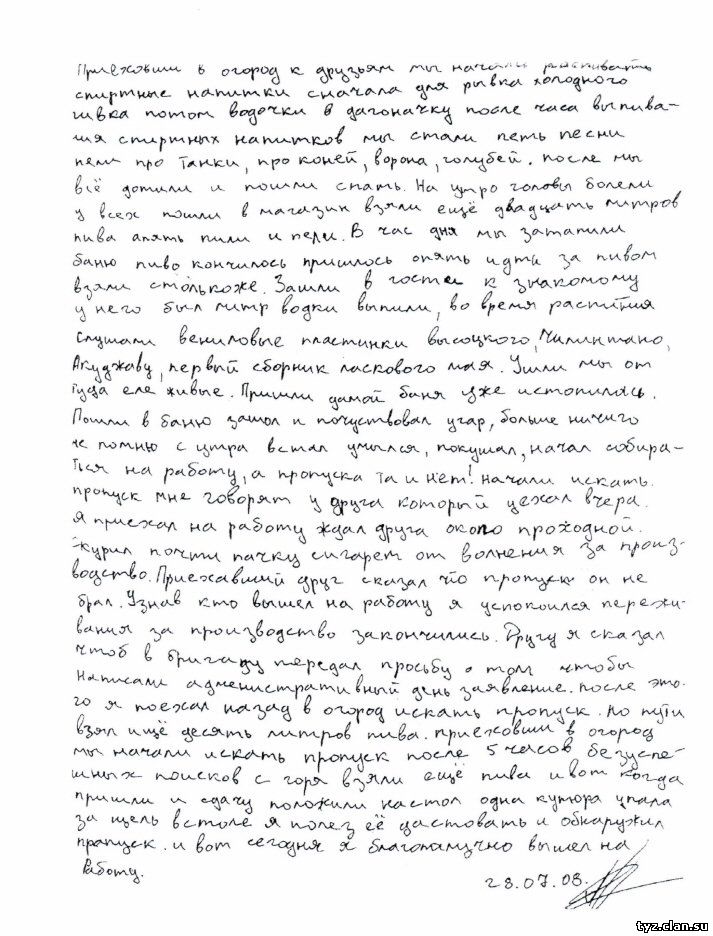 Приехавши в огород к друзьям мы начали распивать
спиртные напитки сначала для рывка холодного
пивка потом водочки в дагоначку после часа выпива-
ия спиртных напитков мы стали петь песни
пели про танки, про коней, ворона, голубей. после мы
всё допили и пошли спать. На утро головы болели
у всех пошли в магазин взяли ещё двадцать литров
пива апять пили и пели. В час дня мы затапили
баню пиво кончилось пришлось опять идти за пивом
взяли столькоже. Зашли в гости к знакомому
у него был литр водки выпили, во время распития
слушали вениловые пластинки высоцкого, Чилинтано,
Акуджаву, первый сборник ласкового мая. Ушли мы от
туда еле живые. Пришли дамой баня уже истопилась.
Пошли в баню зашол и почуствовал угар, больше ничиго
не помню с утра встал умылся, покушал, начал собира-
ться на работу, а пропуска та и нет! начали искать
пропуск мне говорят у друга который уехал вчера.
я приехал на работу ждал друга около проходной.
курил почти пачку сигарет от волнения за произ-
водство. Приехавший друг сказал что пропуск он не
брал. Узнав кто вышел на работу я успокоился пережи-
вания за производство закончились. Другу я сказал
чтоб в бригаду передал просьбу о том чтобы
написали административный день заявление. после это-
го я поехал назад в огород искать пропуск. По пути
взял ищё десять литров пива. приехавши в огород
мы начали искать пропуск после 5 часов безуспе-
шных поисков с горя взяли ещё пива и вот когда
пришли и сдачу положили на стол одна купюра упала
за щель в столе я полез её даставать и обнаружил
прапуск. и вот сегодня я благополучно вышел на
работу.
28.07.08.
tyz.clan.su